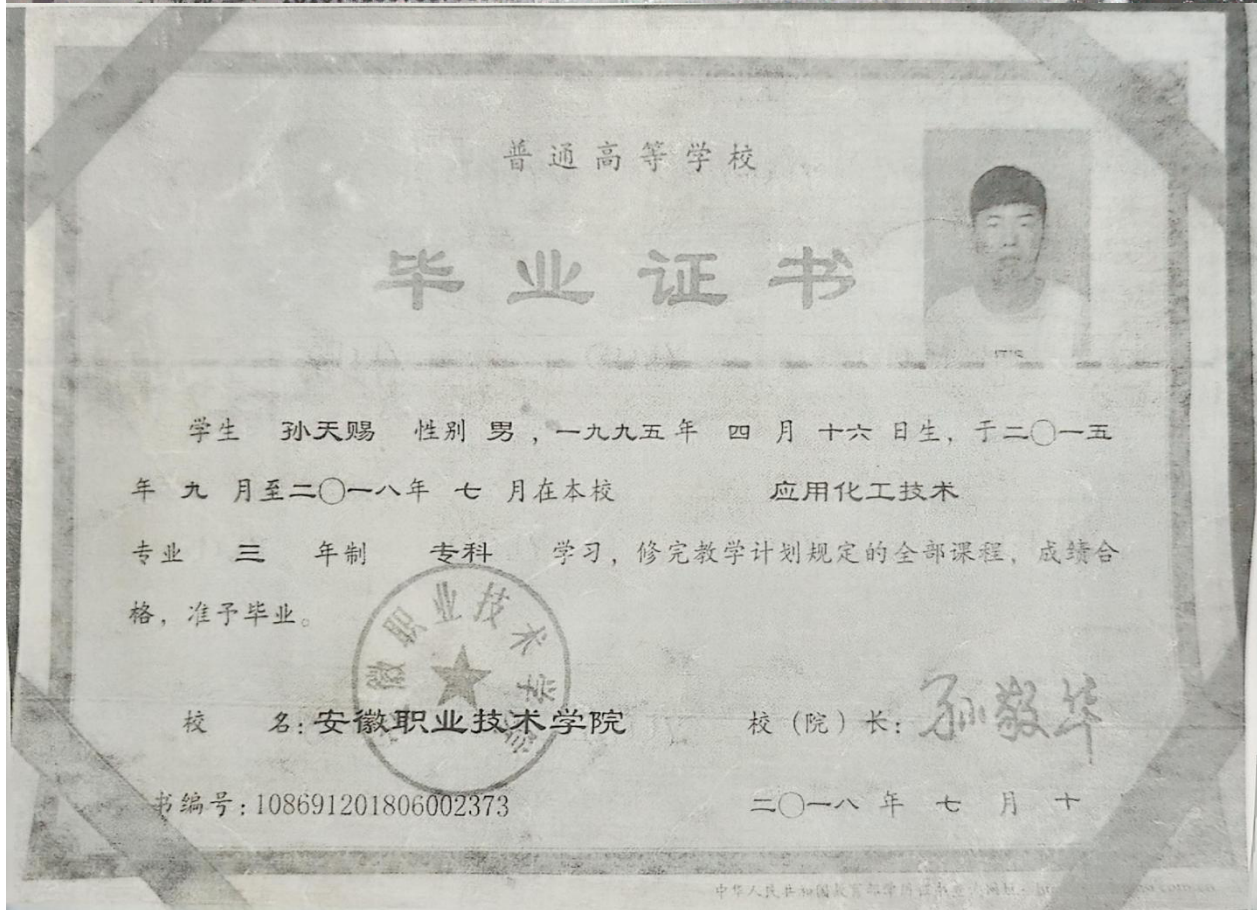 普通高等学校
毕业证书
学生 孙天赐 性别 男，一九九五年 四 月 十六 日生，于二〇一五
年 九 月至二〇一八年 七 月在本校 应用化工技术
专业 三 年制 专科 学习，修完教学计划规定的全部课程，成绩合
格，准予毕业。
徽职业技术学院
校 名：安徽职业技术学院 校（院）长：孙敬华
书编号：108691201806002373 二〇一八 年 七 月 十
中华人民共和国教育部学历证书查询网址：